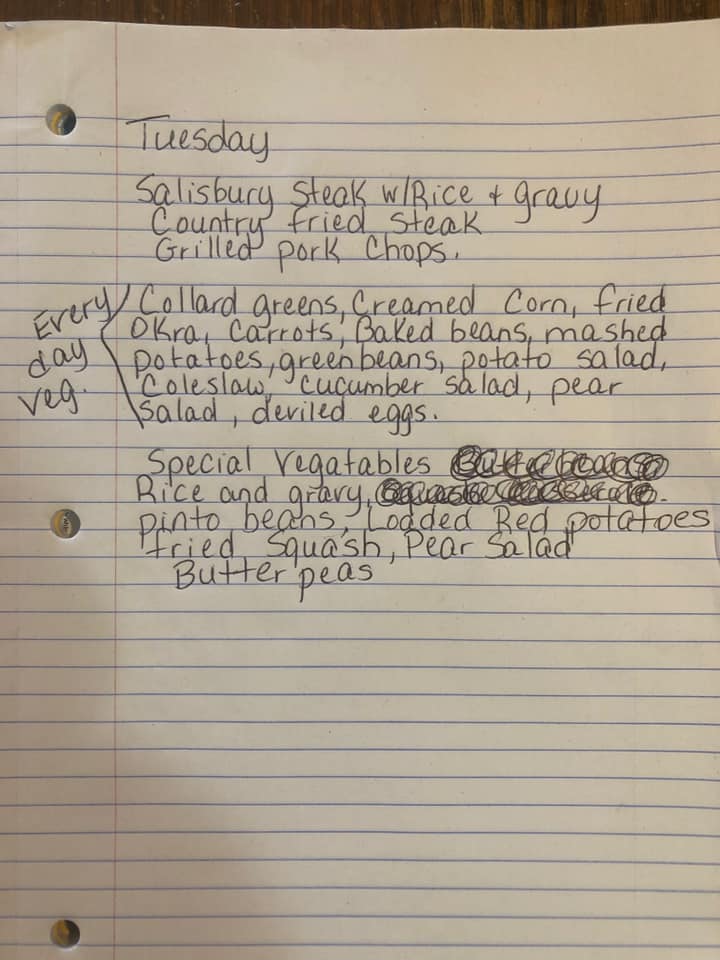 Tuesday
Salisbury Steak w/Rice + gravy
Country fried Steak
Grilled pork Chops.
Every day veg.
Collard greens, Creamed Corn, fried
Okra, Carrots, Baked beans, mashed
potatoes, green beans, potato salad,
Coleslaw, cucumber salad, pear
salad, deviled eggs.
Special Vegatables
Rice and gravy,
pinto beans, Loaded Red potatoes
fried Squash, Pear Salad
Butter peas